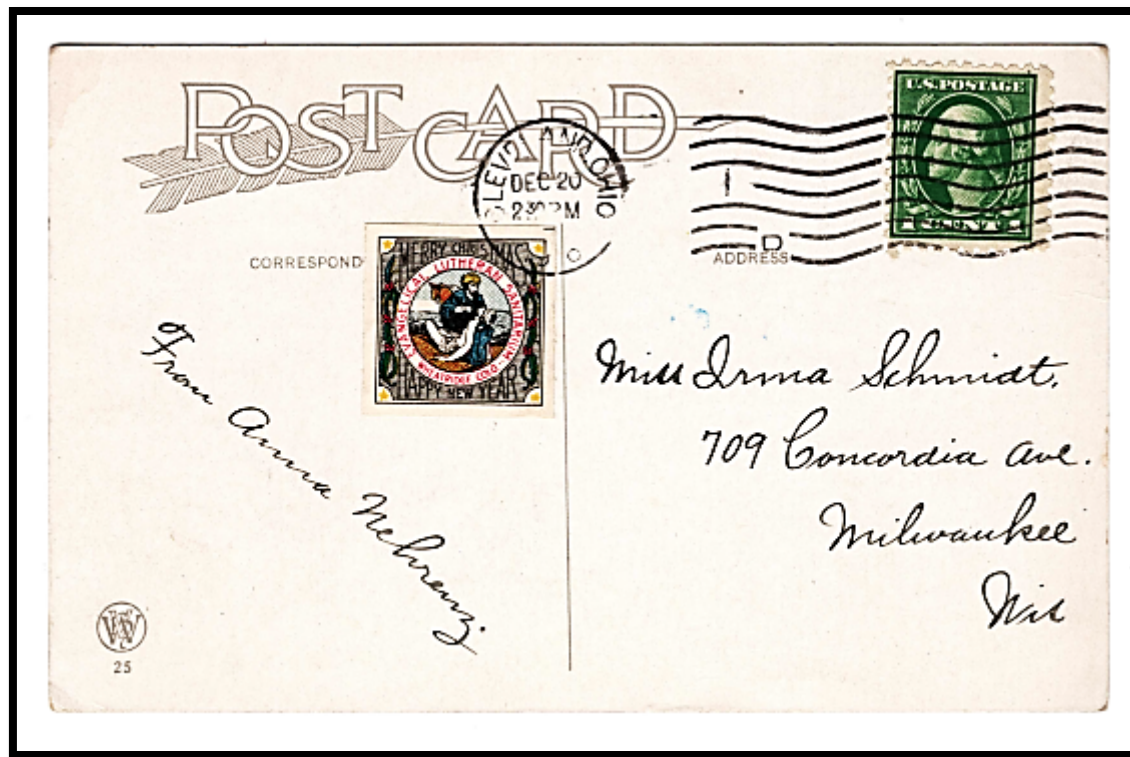 POST CARD
CLEVELAND, OHIO
DEC 20
2 30 PM
D
U.S. POSTAGE
CORRESPOND
ADDRESS
MERRY CHRISTMAS
EVANGELICAL LUTHERAN SANITARIUM
WHEATRIDGE COLO.
HAPPY NEW YEAR
From Anna Nehrenz.
Miss Irma Schmidt.
709 Concordia Ave.
Milwaukee
Wis
25